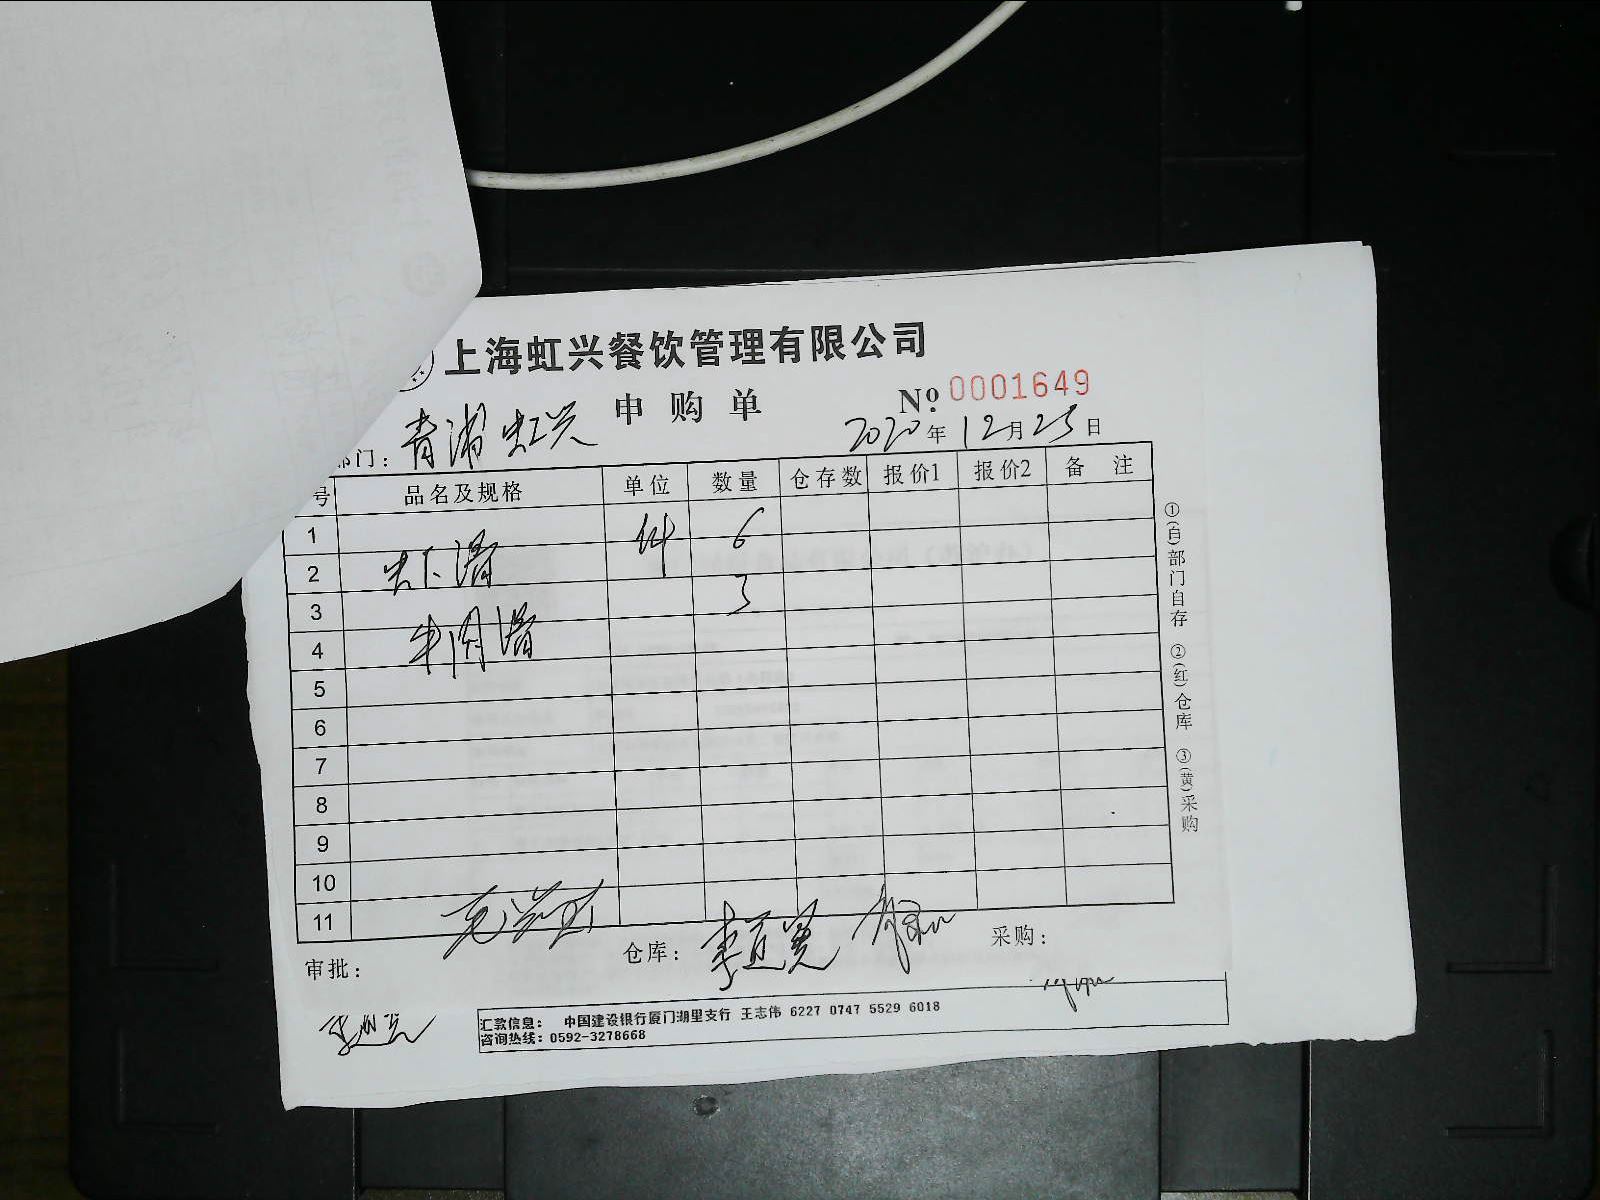 上海虹兴餐饮管理有限公司
申购单 No. 0001649
部门: 青浦虹兴 2020年12月25日
号 品名及规格 单位 数量 仓存数 报价1 报价2 备注
1 件 6
2 虾滑
3 3
4 牛肉滑
5
6
7
8
9
10
11
审批: 仓库: 采购:
①(白)部门自存 ②(红)仓库 ③(黄)采购
汇款信息: 中国建设银行厦门湖里支行 王志伟 6227 0747 5529 6018
咨询热线: 0592-3278668